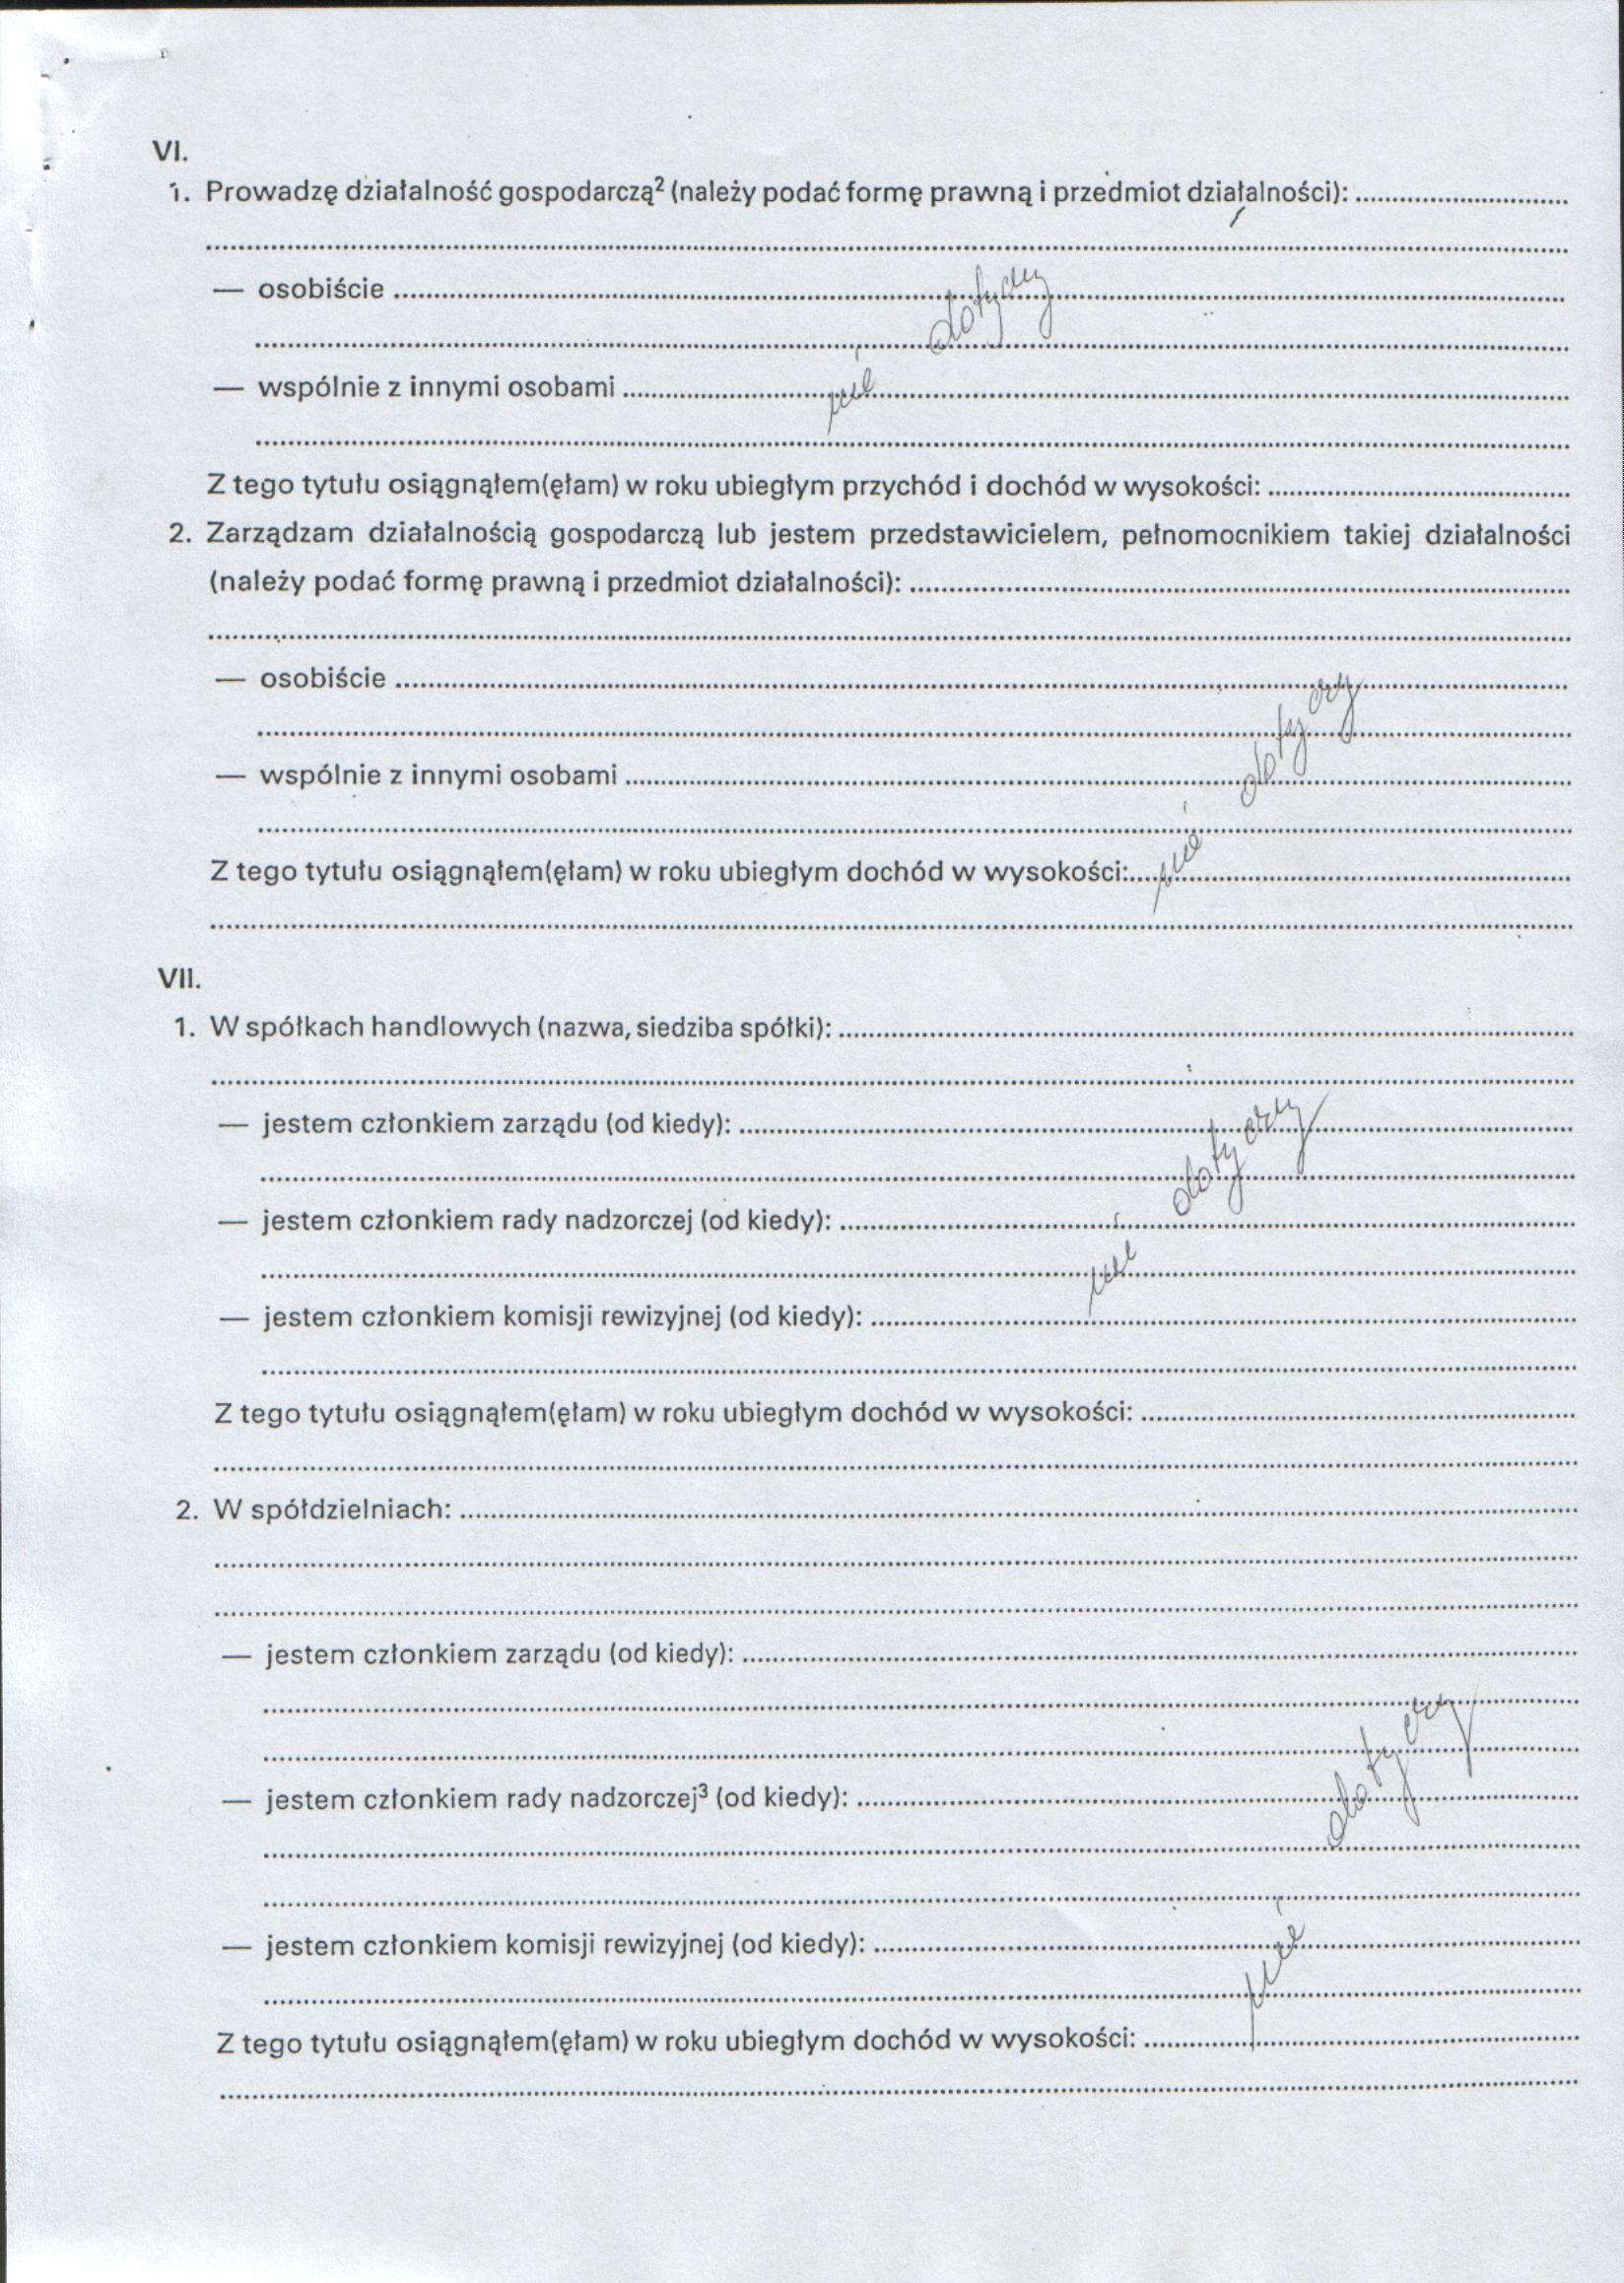 VI.
1. Prowadzę działalność gospodarczą² (należy podać formę prawną i przedmiot działalności):
— osobiście
— wspólnie z innymi osobami
nie dotyczy
Z tego tytułu osiągnąłem(ęłam) w roku ubiegłym przychód i dochód w wysokości:
2. Zarządzam działalnością gospodarczą lub jestem przedstawicielem, pełnomocnikiem takiej działalności
(należy podać formę prawną i przedmiot działalności):
— osobiście
— wspólnie z innymi osobami
nie dotyczy
Z tego tytułu osiągnąłem(ęłam) w roku ubiegłym dochód w wysokości:
VII.
1. W spółkach handlowych (nazwa, siedziba spółki):
— jestem członkiem zarządu (od kiedy):
— jestem członkiem rady nadzorczej (od kiedy):
nie dotyczy
— jestem członkiem komisji rewizyjnej (od kiedy):
Z tego tytułu osiągnąłem(ęłam) w roku ubiegłym dochód w wysokości:
2. W spółdzielniach:
— jestem członkiem zarządu (od kiedy):
— jestem członkiem rady nadzorczej³ (od kiedy):
nie dotyczy
— jestem członkiem komisji rewizyjnej (od kiedy):
Z tego tytułu osiągnąłem(ęłam) w roku ubiegłym dochód w wysokości: